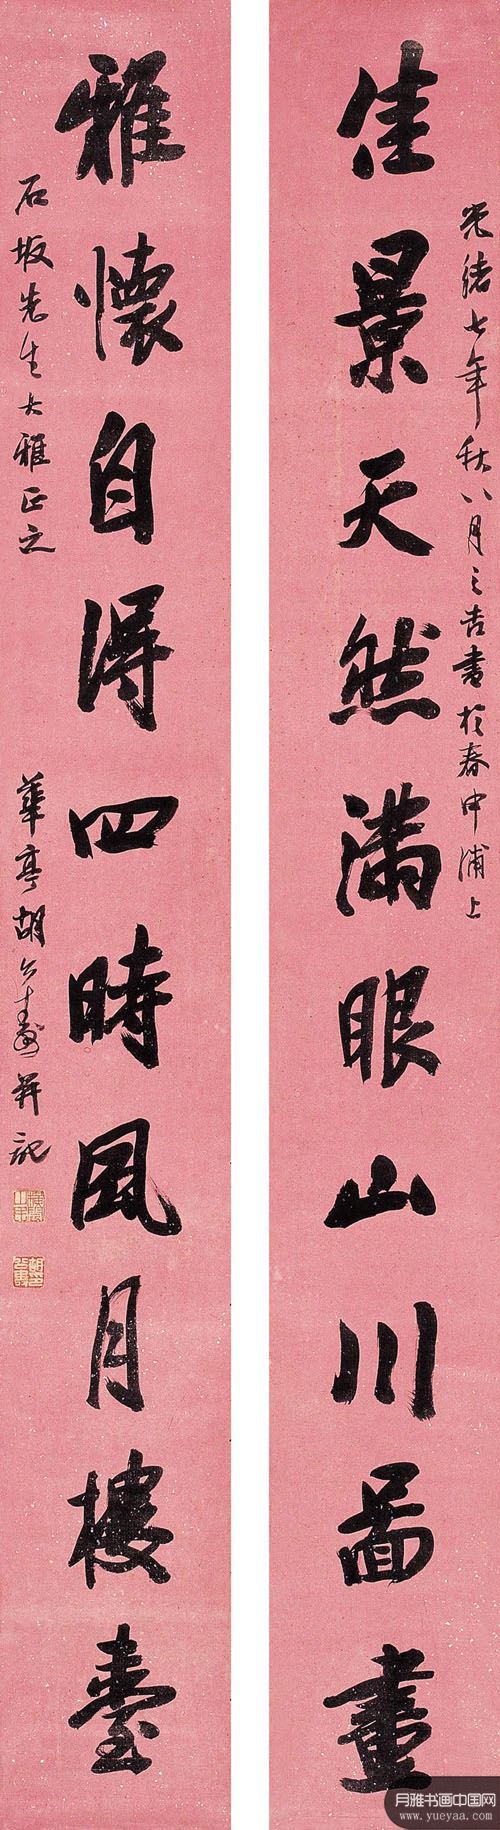 光緒七年秋八月之吉書於春申浦上
佳景天然滿眼山川圖畫
雅懷自得四時風月樓臺
石坂先生大雅正之
華亭胡公壽并記
胡公壽印
月雅书画中国网
www.yueyaa.com